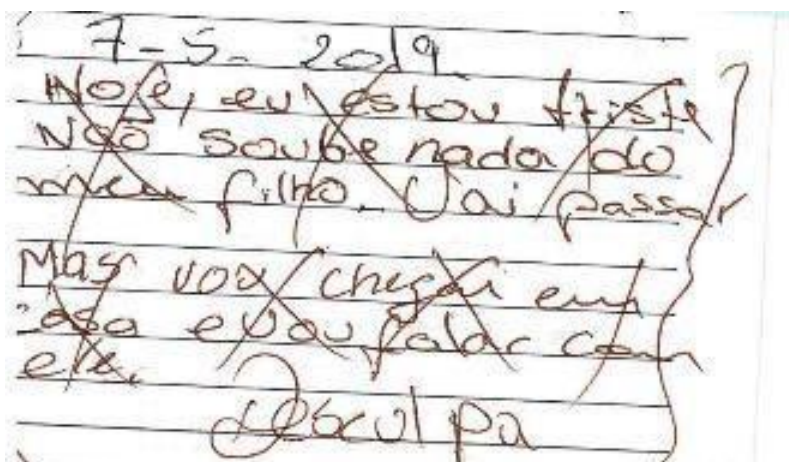 7-5-2019
Hoje, eu estou triste
Não soube nada do
meu filho. Vai passar
Mas vou chegar em
casa e vou falar com
ele.
Desculpa